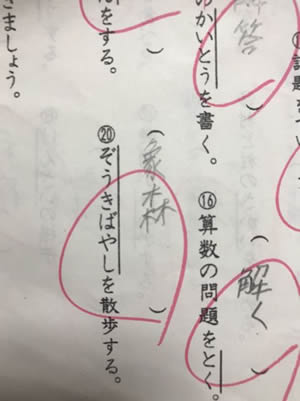 答)
かいとうを書く。
)
をする。
ましょう。
(解く)
⑯算数の問題をとく。
(象森)
⑳ぞうきばやしを散歩する。